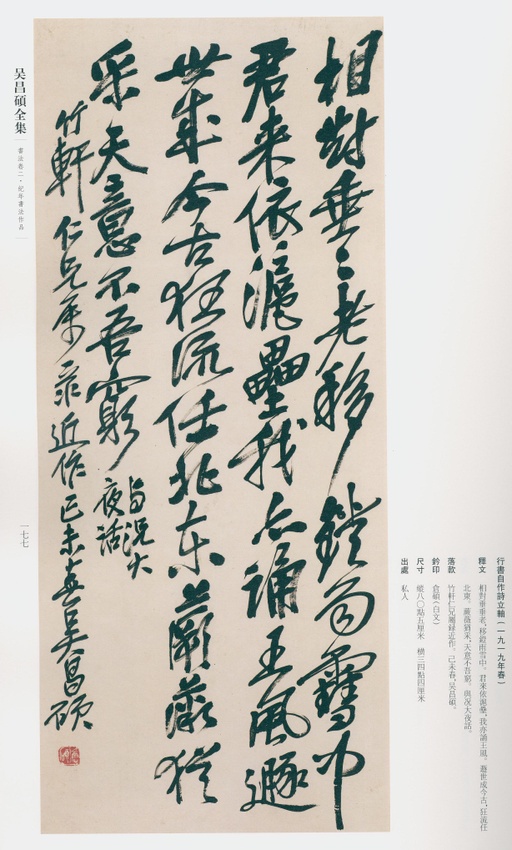 行書自作詩立軸(一九一九年春)
釋文 相對垂垂老,移鐙雨雪中。君來依滬壘,我亦誦王風。遯世成今古,狂流任
北東。蕨薇猶采,天意不吾窮。與況大夜話。
落款 竹軒仁兄屬錄近作。己未春,吳昌碩。
鈐印 倉碩(白文)
尺寸 縱八〇點五厘米 橫三四點四厘米
出處 私人
相對垂〻老移鐙雨雪中
君來依滬壘我亦誦王風遯
世成今古狂流任北東蕨薇猶
采天意不吾窮
與況大
夜話
竹軒仁兄屬錄近作己未春吳昌碩
吴昌碩全集
書法卷二·紀年書法作品
一七七